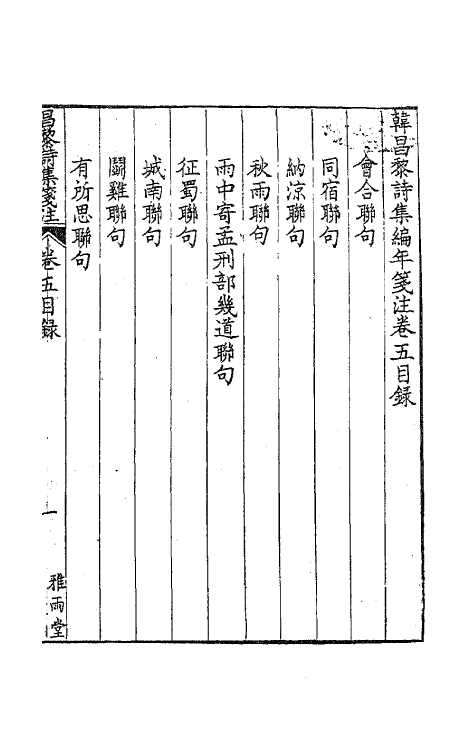 韓昌黎詩集編年箋注卷五目錄
會合聯句
同宿聯句
納涼聯句
秋雨聯句
雨中寄孟刑部幾道聯句
征蜀聯句
城南聯句
鬬雞聯句
有所思聯句
昌黎詩集箋注 卷五目錄 一 雅雨堂